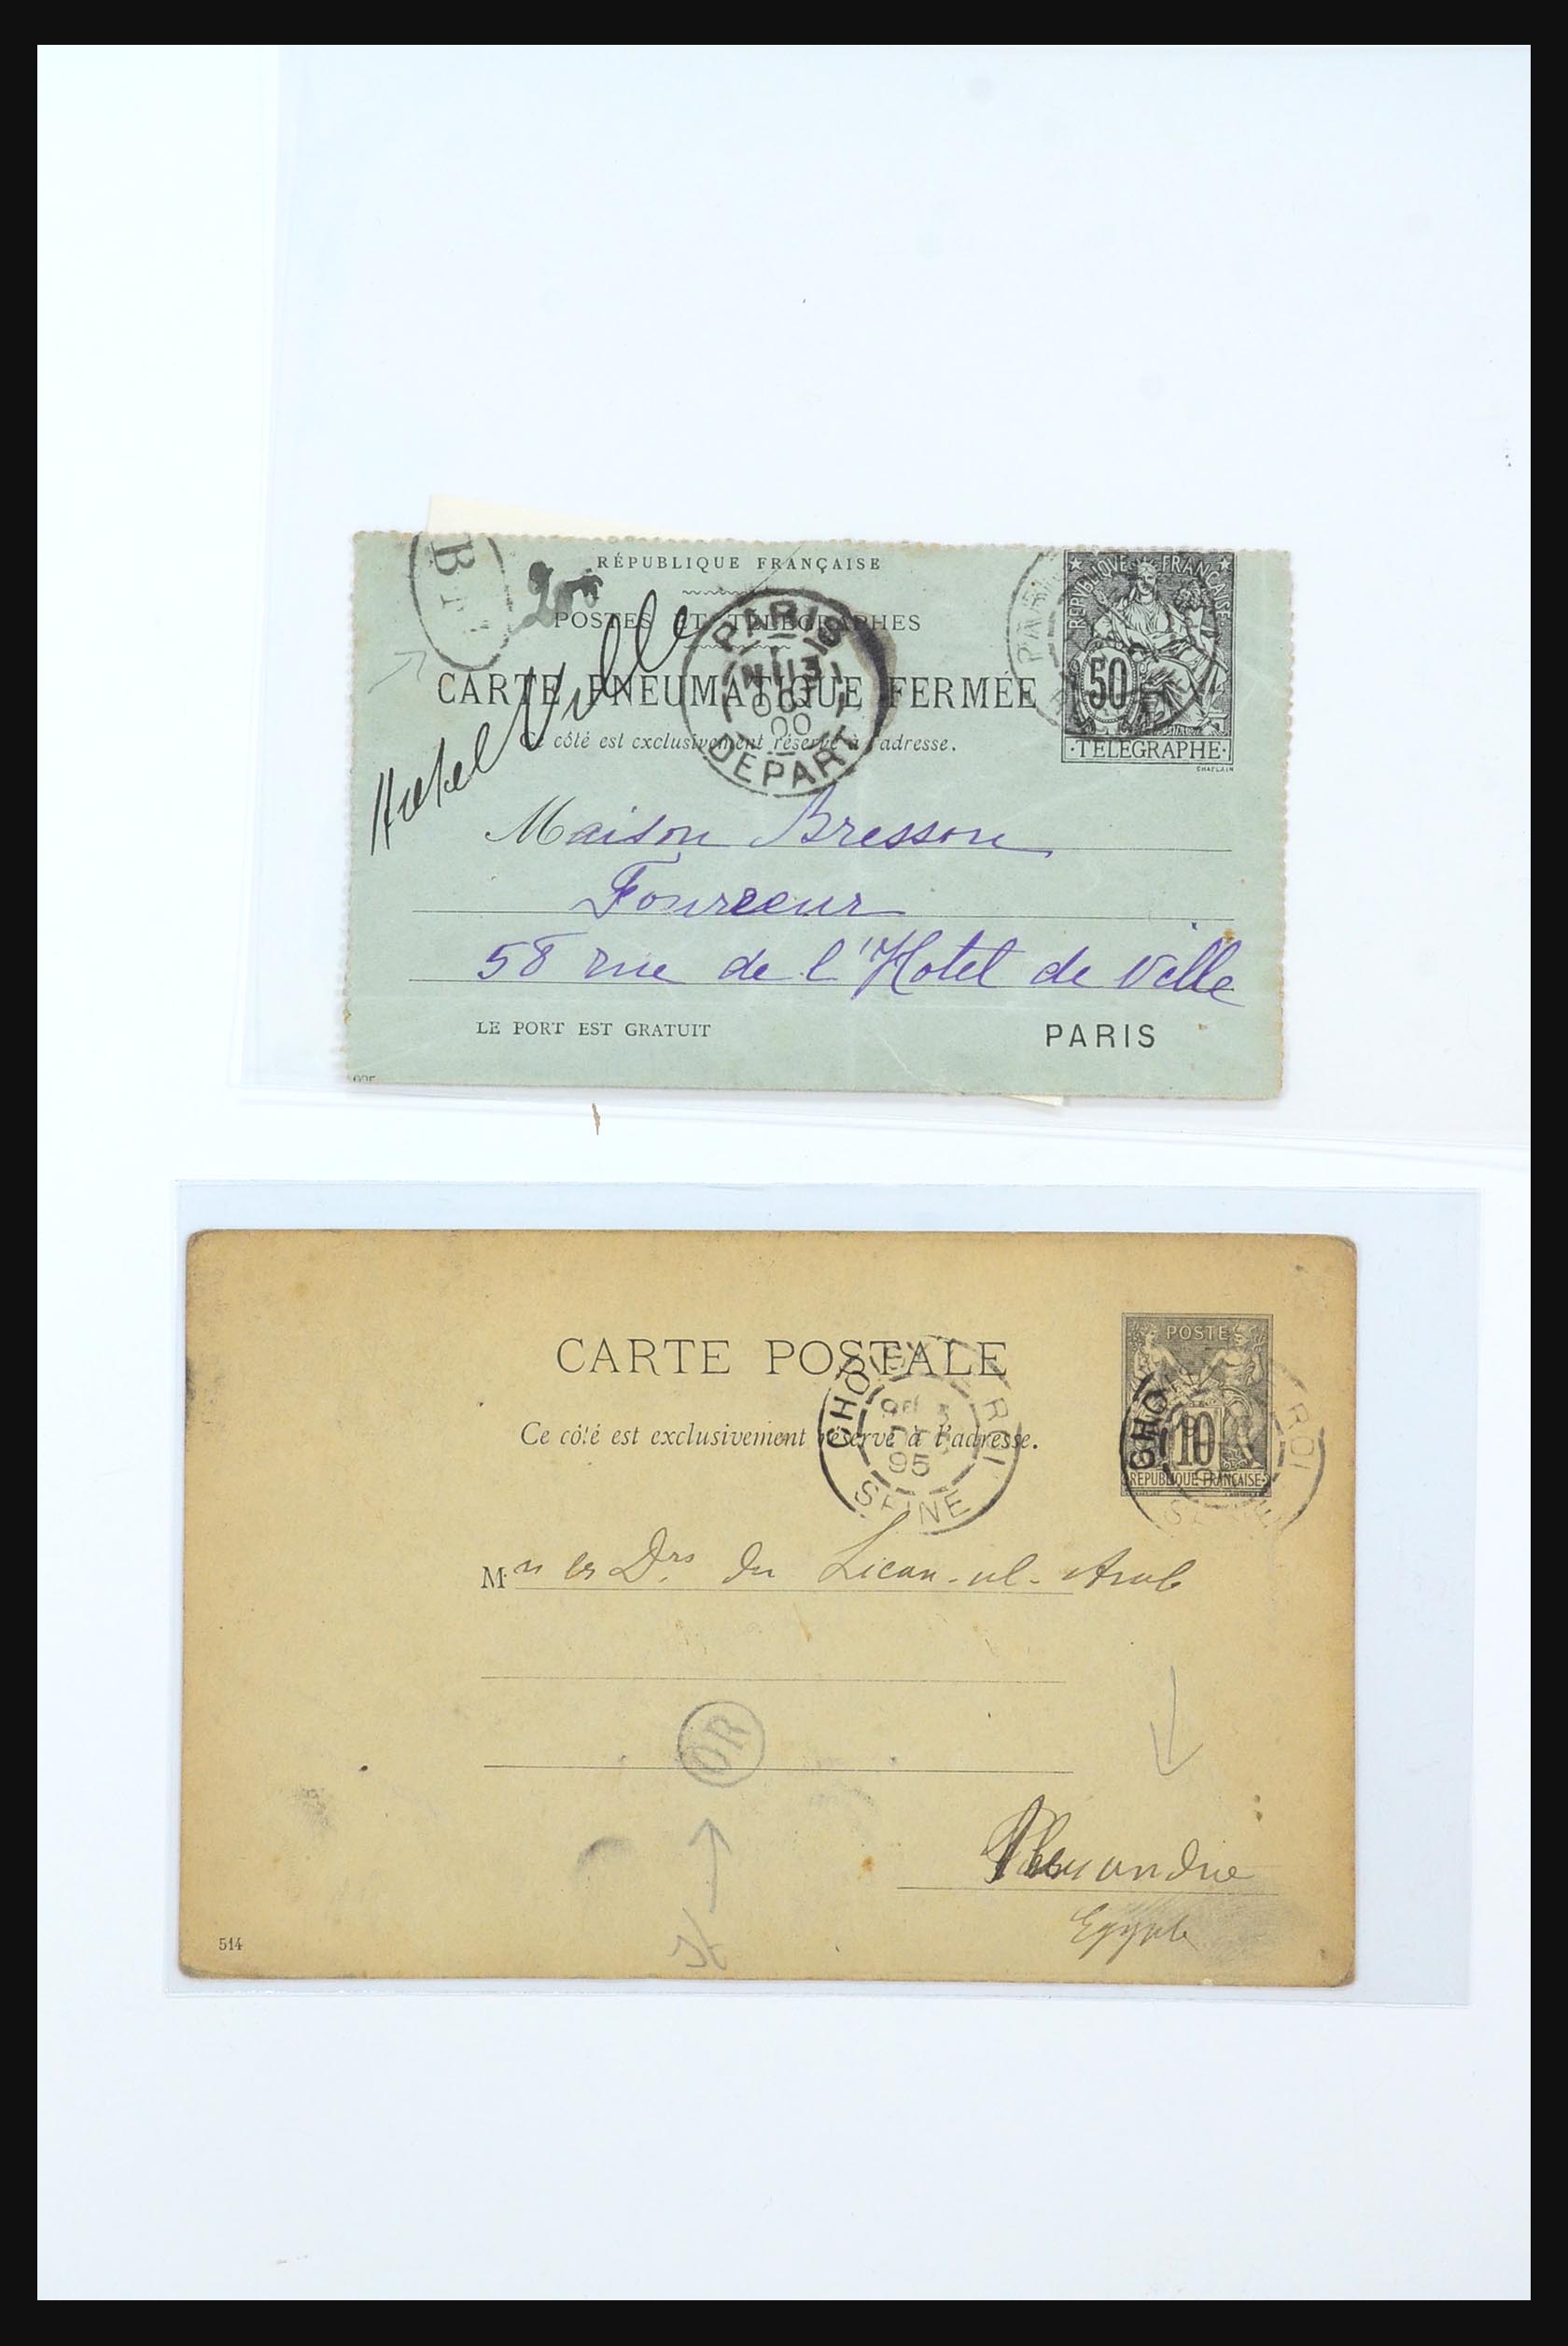 RÉPUBLIQUE FRANÇAISE
POSTES ET TÉLÉGRAPHES
CARTE PNEUMATIQUE FERMÉE
Ce côté est exclusivement réservé à l'adresse.
PARIS
13
OCT
00
DEPART
REPUBLIQUE FRANCAISE
50
TELEGRAPHE
CHAPLAIN
Hotel Ville
Maison Bresson
Fourreur
58 rue de l'Hotel de Ville
LE PORT EST GRATUIT
PARIS
CARTE POSTALE
Ce côté est exclusivement réservé à l'adresse.
POSTE
10
REPUBLIQUE FRANÇAISE
CHOISY LE ROI
95
SEINE
Mrs les Drs du Lican-ul-Arab
OR
Alexandrie
Egypte
514